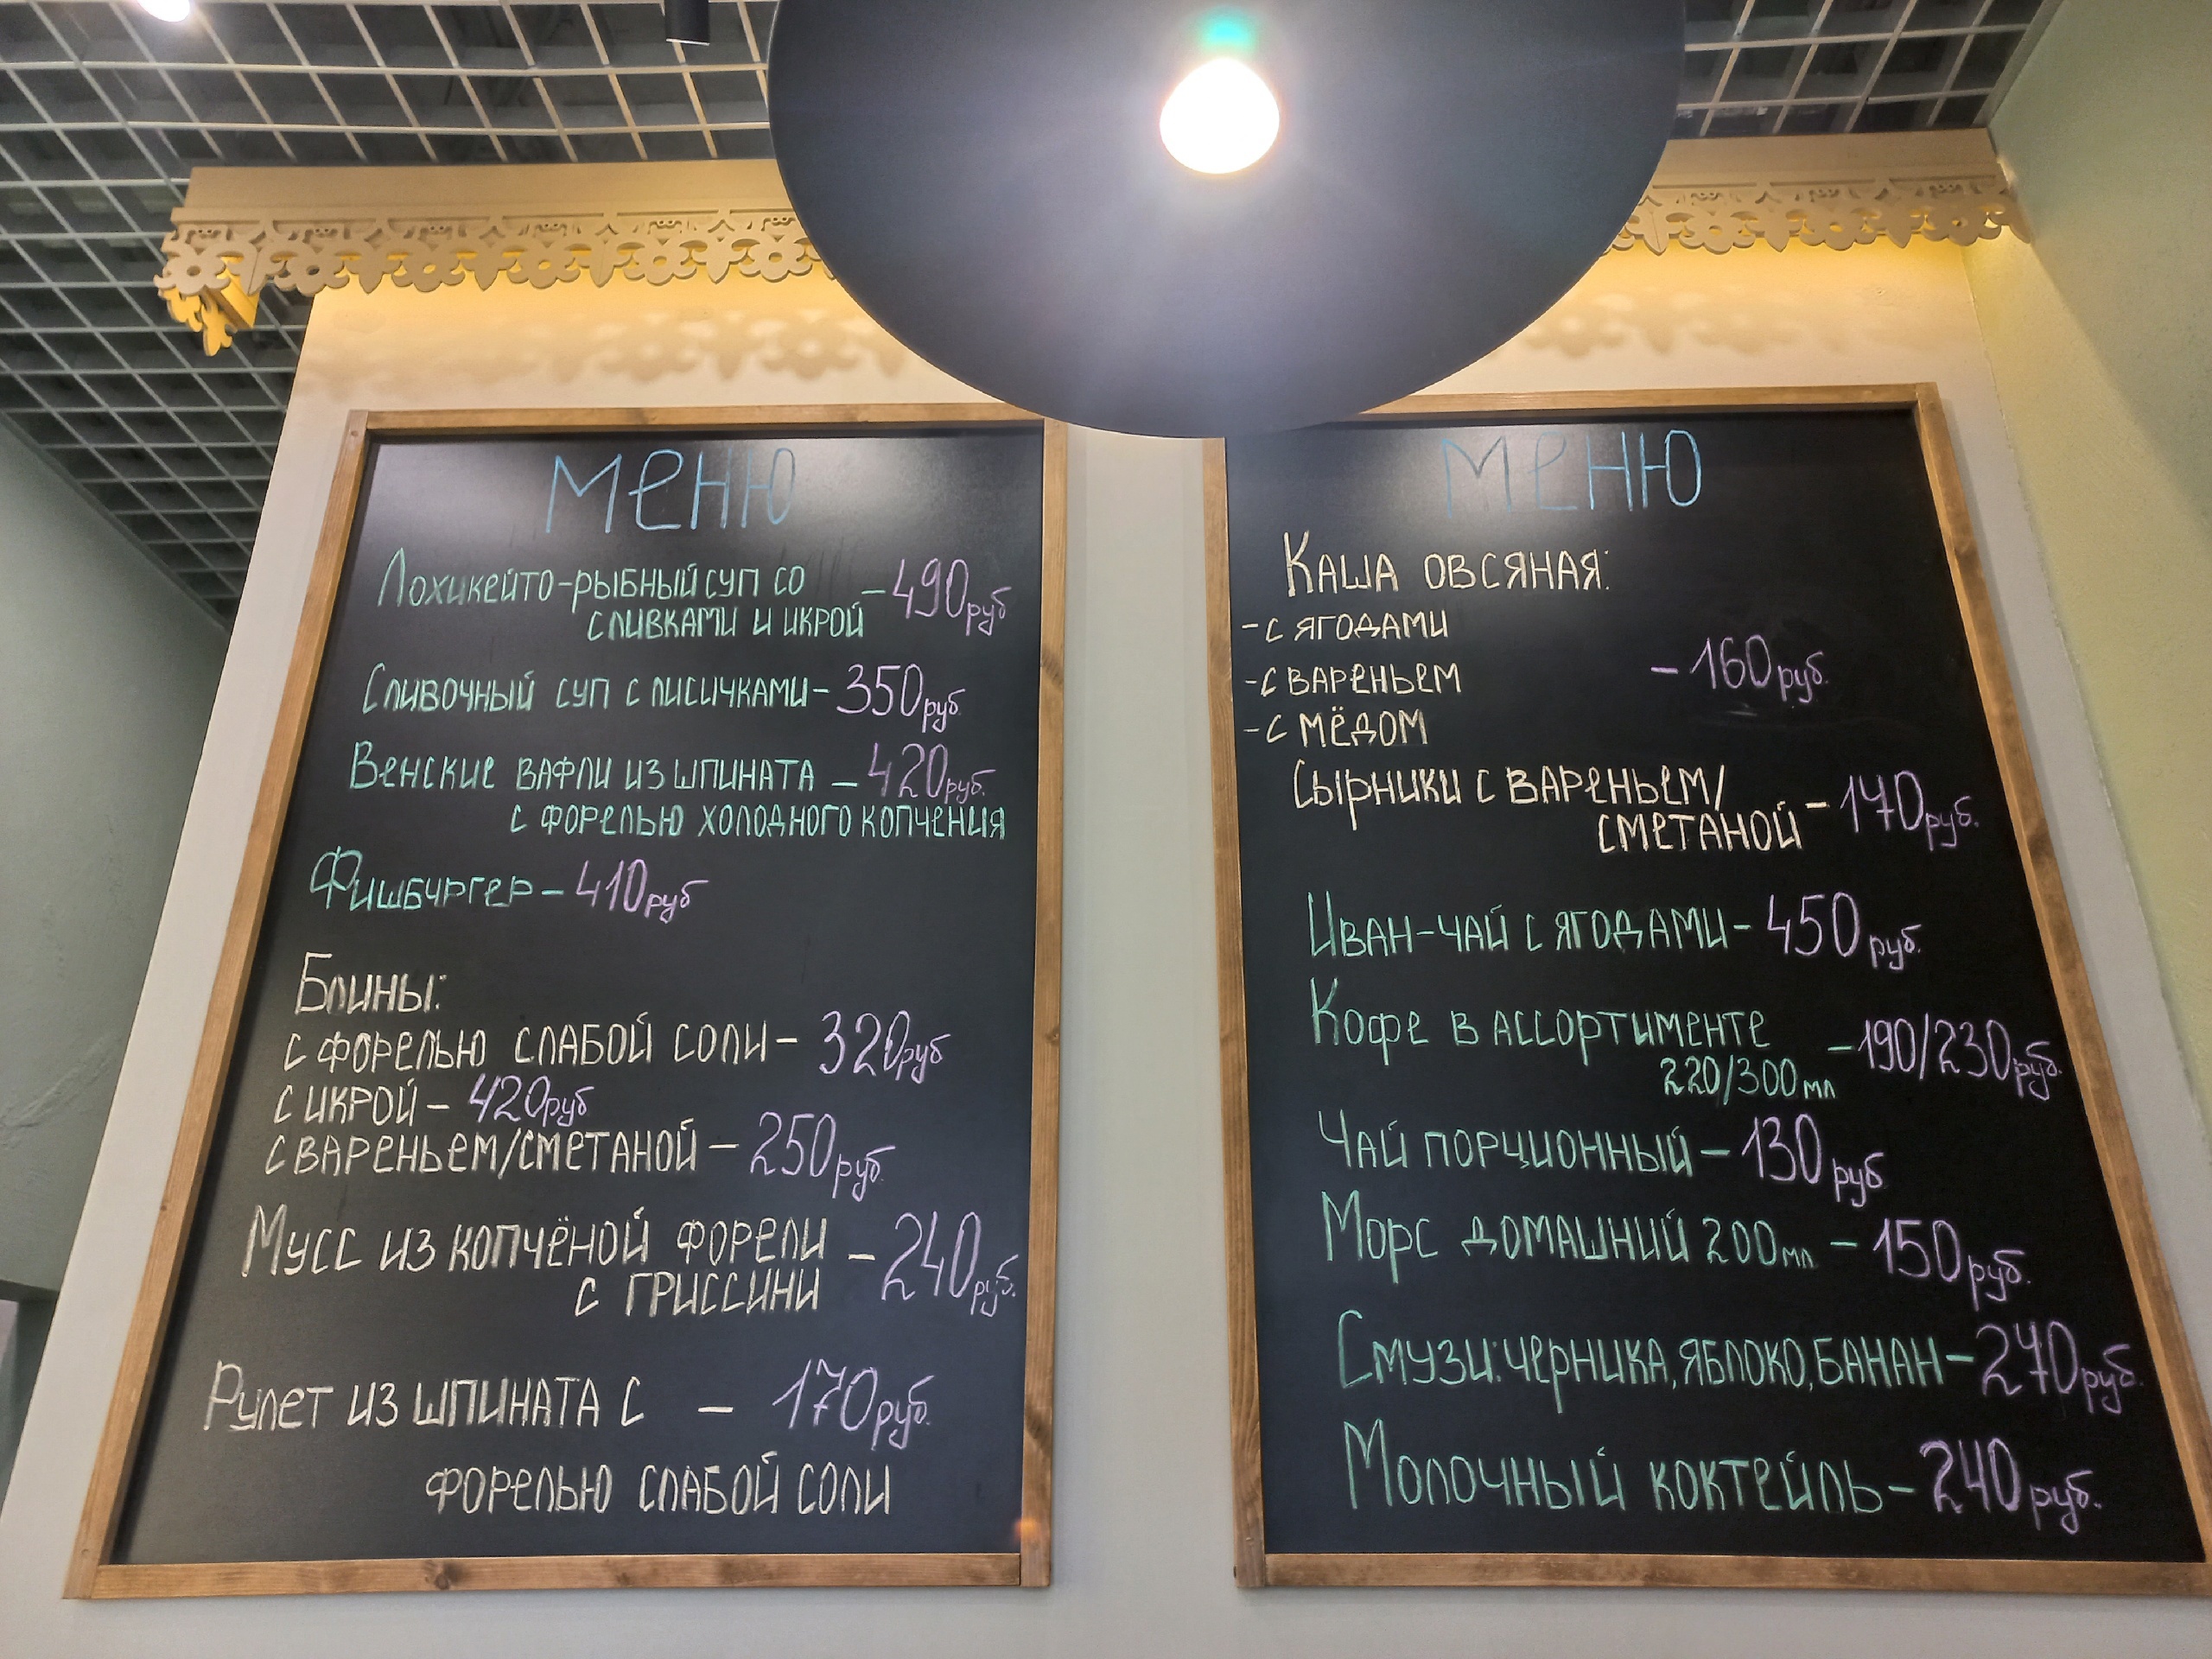 Меню
Лохикейто-рыбный суп со - 490 руб
сливками и икрой
Сливочный суп с лисичками - 350 руб.
Венские вафли из шпината - 420 руб.
с форелью холодного копчения
Фишбургер - 410 руб
Блины:
с форелью слабой соли - 320 руб
с икрой - 420 руб
с вареньем/сметаной - 250 руб.
Мусс из копчёной форели - 240 руб.
с гриссини
Рулет из шпината с - 170 руб.
форелью слабой соли
Меню
Каша овсяная:
- с ягодами
- с вареньем - 160 руб.
- с мёдом
Сырники с вареньем/ - 170 руб.
сметаной
Иван-чай с ягодами - 450 руб.
Кофе в ассортименте - 190/230 руб.
220/300 мл
Чай порционный - 130 руб
Морс домашний 200 мл - 150 руб.
Смузи: черника, яблоко, банан - 270 руб.
Молочный коктейль - 240 руб.